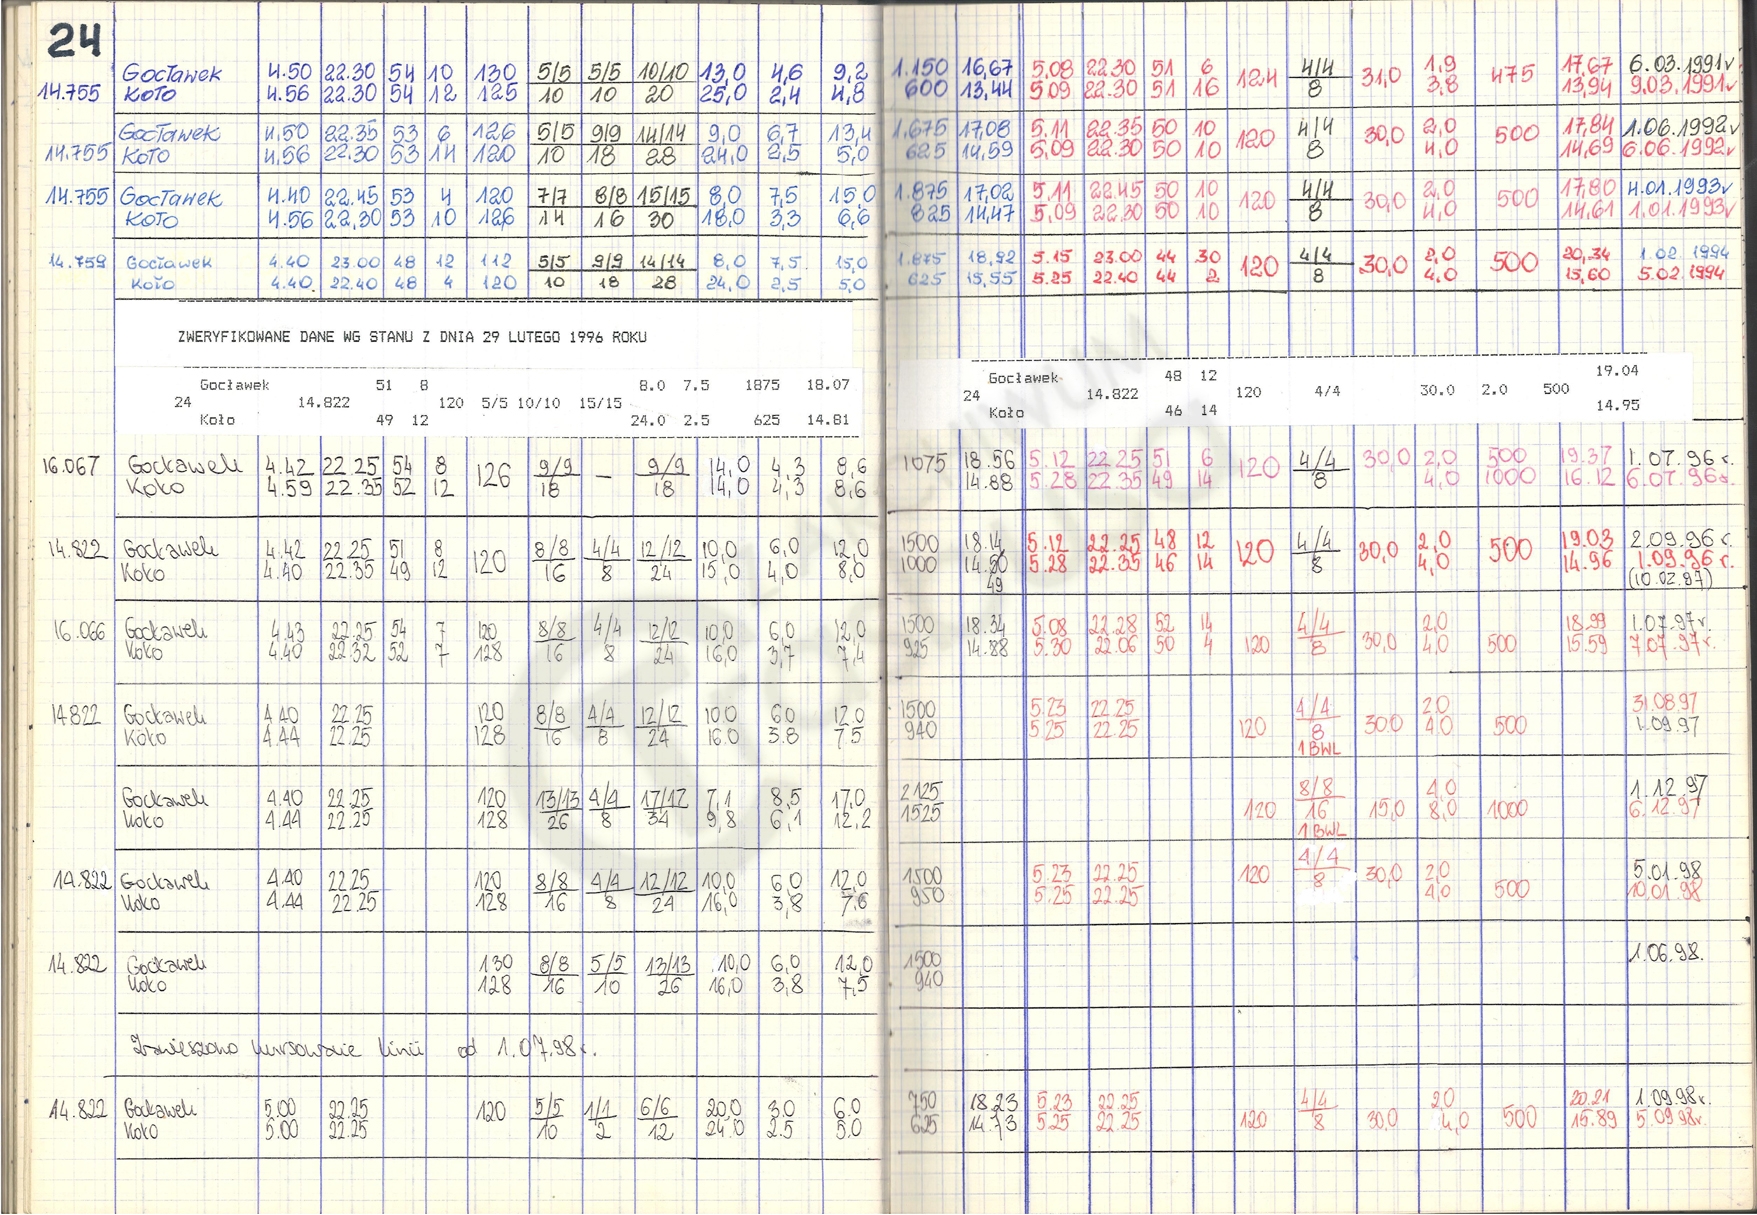 24
Gocławek 4.50 22.30 54 10 130 5/5 5/5 10/10 13,0 4,6 9,2 1.150 16,67 5.08 22.30 51 6 124 4/4 31,0 1,9 475 17,67 6.03.1991r
14.755 Koło 4.56 22.30 54 12 125 10 10 20 25,0 2,4 4,8 600 13,44 5.09 22.30 51 16 8 3,8 13,94 9.03.1991r
Gocławek 4.50 22.35 53 6 126 5/5 9/9 14/14 9,0 6,7 13,4 1.675 17,08 5.11 22.35 50 10 120 4/4 30,0 2,0 500 17,84 1.06.1992r
14.755 Koło 4.56 22.30 53 14 120 10 18 28 24,0 2,5 5,0 625 14,59 5.09 22.30 50 10 8 4,0 14,69 6.06.1992r
14.755 Gocławek 4.40 22.45 53 4 120 7/7 8/8 15/15 8,0 7,5 15,0 1.875 17,02 5.11 22.45 50 10 120 4/4 30,0 2,0 500 17,80 4.01.1993r
Koło 4.56 22.30 53 10 126 14 16 30 18,0 3,3 6,6 825 14,47 5.09 22.30 50 10 8 4,0 14,61 1.01.1993r
14.759 Gocławek 4.40 23.00 48 12 112 5/5 9/9 14/14 8,0 7,5 15,0 1.875 18,92 5.15 23.00 44 30 120 4/4 30,0 2,0 500 20,34 1.02.1994
Koło 4.40. 22.40 48 4 120 10 18 28 24,0 2,5 5,0 625 15,55 5.25 22.40 44 2 8 4,0 15,60 5.02.1994
ZWERYFIKOWANE DANE WG STANU Z DNIA 29 LUTEGO 1996 ROKU
Gocławek 51 8 8.0 7.5 1875 18.07
24 14.822 120 5/5 10/10 15/15
Koło 49 12 24.0 2.5 625 14.81
Gocławek 48 12 19.04
24 14.822 120 4/4 30.0 2.0 500
Koło 46 14 14.95
16.067 Gocławek 4.42 22.25 54 8 126 9/9 — 9/9 14,0 4,3 8,6 1075 18.56 5.12 22.25 51 6 120 4/4 30,0 2,0 500 19.37 1.07.96 r.
Koło 4.59 22.35 52 12 18 18 14,0 4,3 8,6 14.88 5.28 22.35 49 14 8 4,0 1000 16.12 6.07.96r.
14.822 Gocławek 4.42 22.25 51 8 120 8/8 4/4 12/12 10,0 6,0 12,0 1500 18.14 5.12 22.25 48 12 120 4/4 30,0 2,0 500 19.03 2.09.96 r.
Koło 4.40 22.35 49 12 16 8 24 15,0 4,0 8,0 1000 14.50 5.28 22.35 46 14 8 4,0 14.96 1.09.96 r.
49 (10.02.97)
16.066 Gocławek 4.43 22.25 54 7 120 8/8 4/4 12/12 10,0 6,0 12,0 1500 18.34 5.08 22.28 52 14 120 4/4 30,0 2,0 500 18.99 1.07.97r.
Koło 4.40 22.32 52 7 128 16 8 24 16,0 3,7 7,4 925 14.88 5.30 22.06 50 4 8 4,0 15.59 7.07.97r.
14822 Gocławek 4.40 22.25 120 8/8 4/4 12/12 10.0 6.0 12.0 1500 5.23 22.25 120 4/4 30.0 2.0 500 31.08.97
Koło 4.44 22.25 128 16 8 24 16.0 3.8 7.5 940 5.25 22.25 8 4.0 1.09.97
1 BWL
Gocławek 4.40 22.25 120 13/13 4/4 17/17 7,1 8,5 17,0 2125 120 8/8 15,0 4,0 1000 1.12.97
Koło 4.44 22.25 128 26 8 34 9,8 6,1 12,2 1525 16 8,0 6.12.97
1 BWL
14.822 Gocławek 4.40 22.25 120 8/8 4/4 12/12 10,0 6,0 12,0 1500 5.23 22.25 120 4/4 30,0 2,0 500 5.01.98
Koło 4.44 22.25 128 16 8 24 16,0 3,8 7,6 950 5.25 22.25 8 4,0 10.01.98
14.822 Gocławek 130 8/8 5/5 13/13 10,0 6,0 12,0 1500 1.06.98.
Koło 128 16 10 26 16,0 3,8 7,5 940
Zawieszono kursowanie linii od 1.07.98r.
14.822 Gocławek 5.00 22.25 120 5/5 1/1 6/6 20,0 3.0 6.0 750 18.23 5.23 22.25 120 4/4 30,0 2.0 500 20.21 1.09.98r.
Koło 5.00 22.25 10 2 12 24.0 2.5 5.0 625 14.73 5.25 22.25 8 4,0 15.89 5.09.98r.